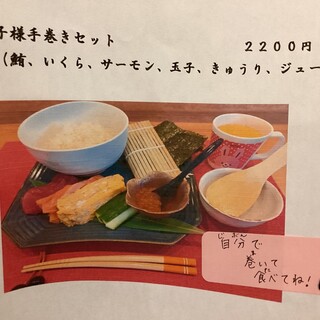 子様手巻きセット　2200円
（鮪、いくら、サーモン、玉子、きゅうり、ジュー
じぶん
自分で
ま
巻いて
た
食べてね!